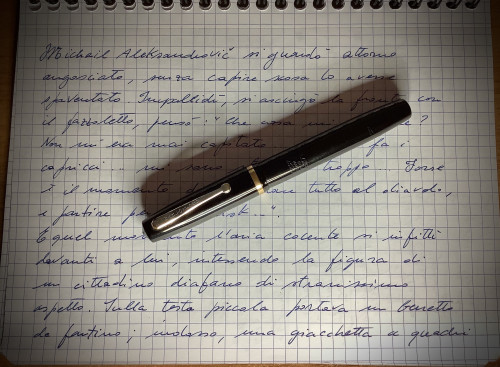 Michail Aleksandrovič si guardò attorno
angosciato, senza capire cosa lo avesse
spaventato. Impallidì, si asciugò la fronte con
il fazzoletto, pensò: "Che cosa mi e?
Non mi era mai capitato fa i
capricci... mi troppo. Forse
è il momento di tutto al diavolo,
e partire
E quel l'aria cocente si infittì
davanti a lui, intessendo la figura di
un cittadino diafano di stranissimo
aspetto. Sulla testa piccola portava un berretto
da fantino; indosso, una giacchetta a quadri